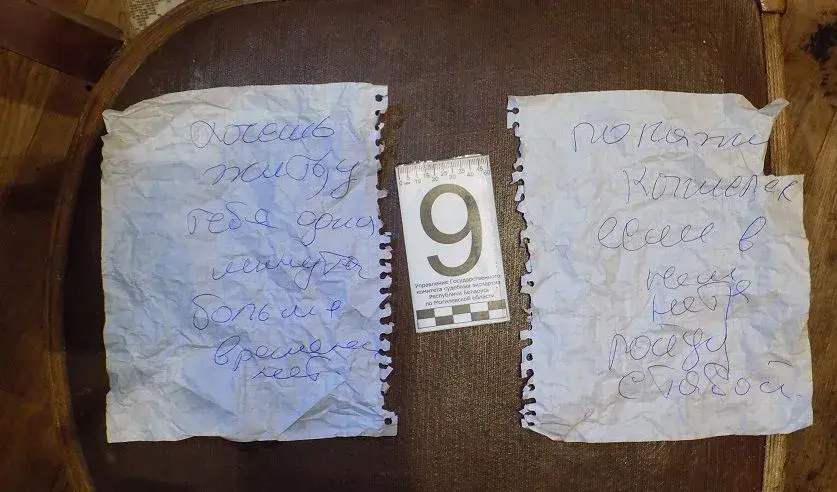 хочешь
жить у
тебя одна
минута
больше
времени
нет
9
Управление Государственного
комитета судебных экспертиз
Республики Беларусь
по Могилевской области
покажи
кошелек
если в
нем
нет я
пойду
с тобой.